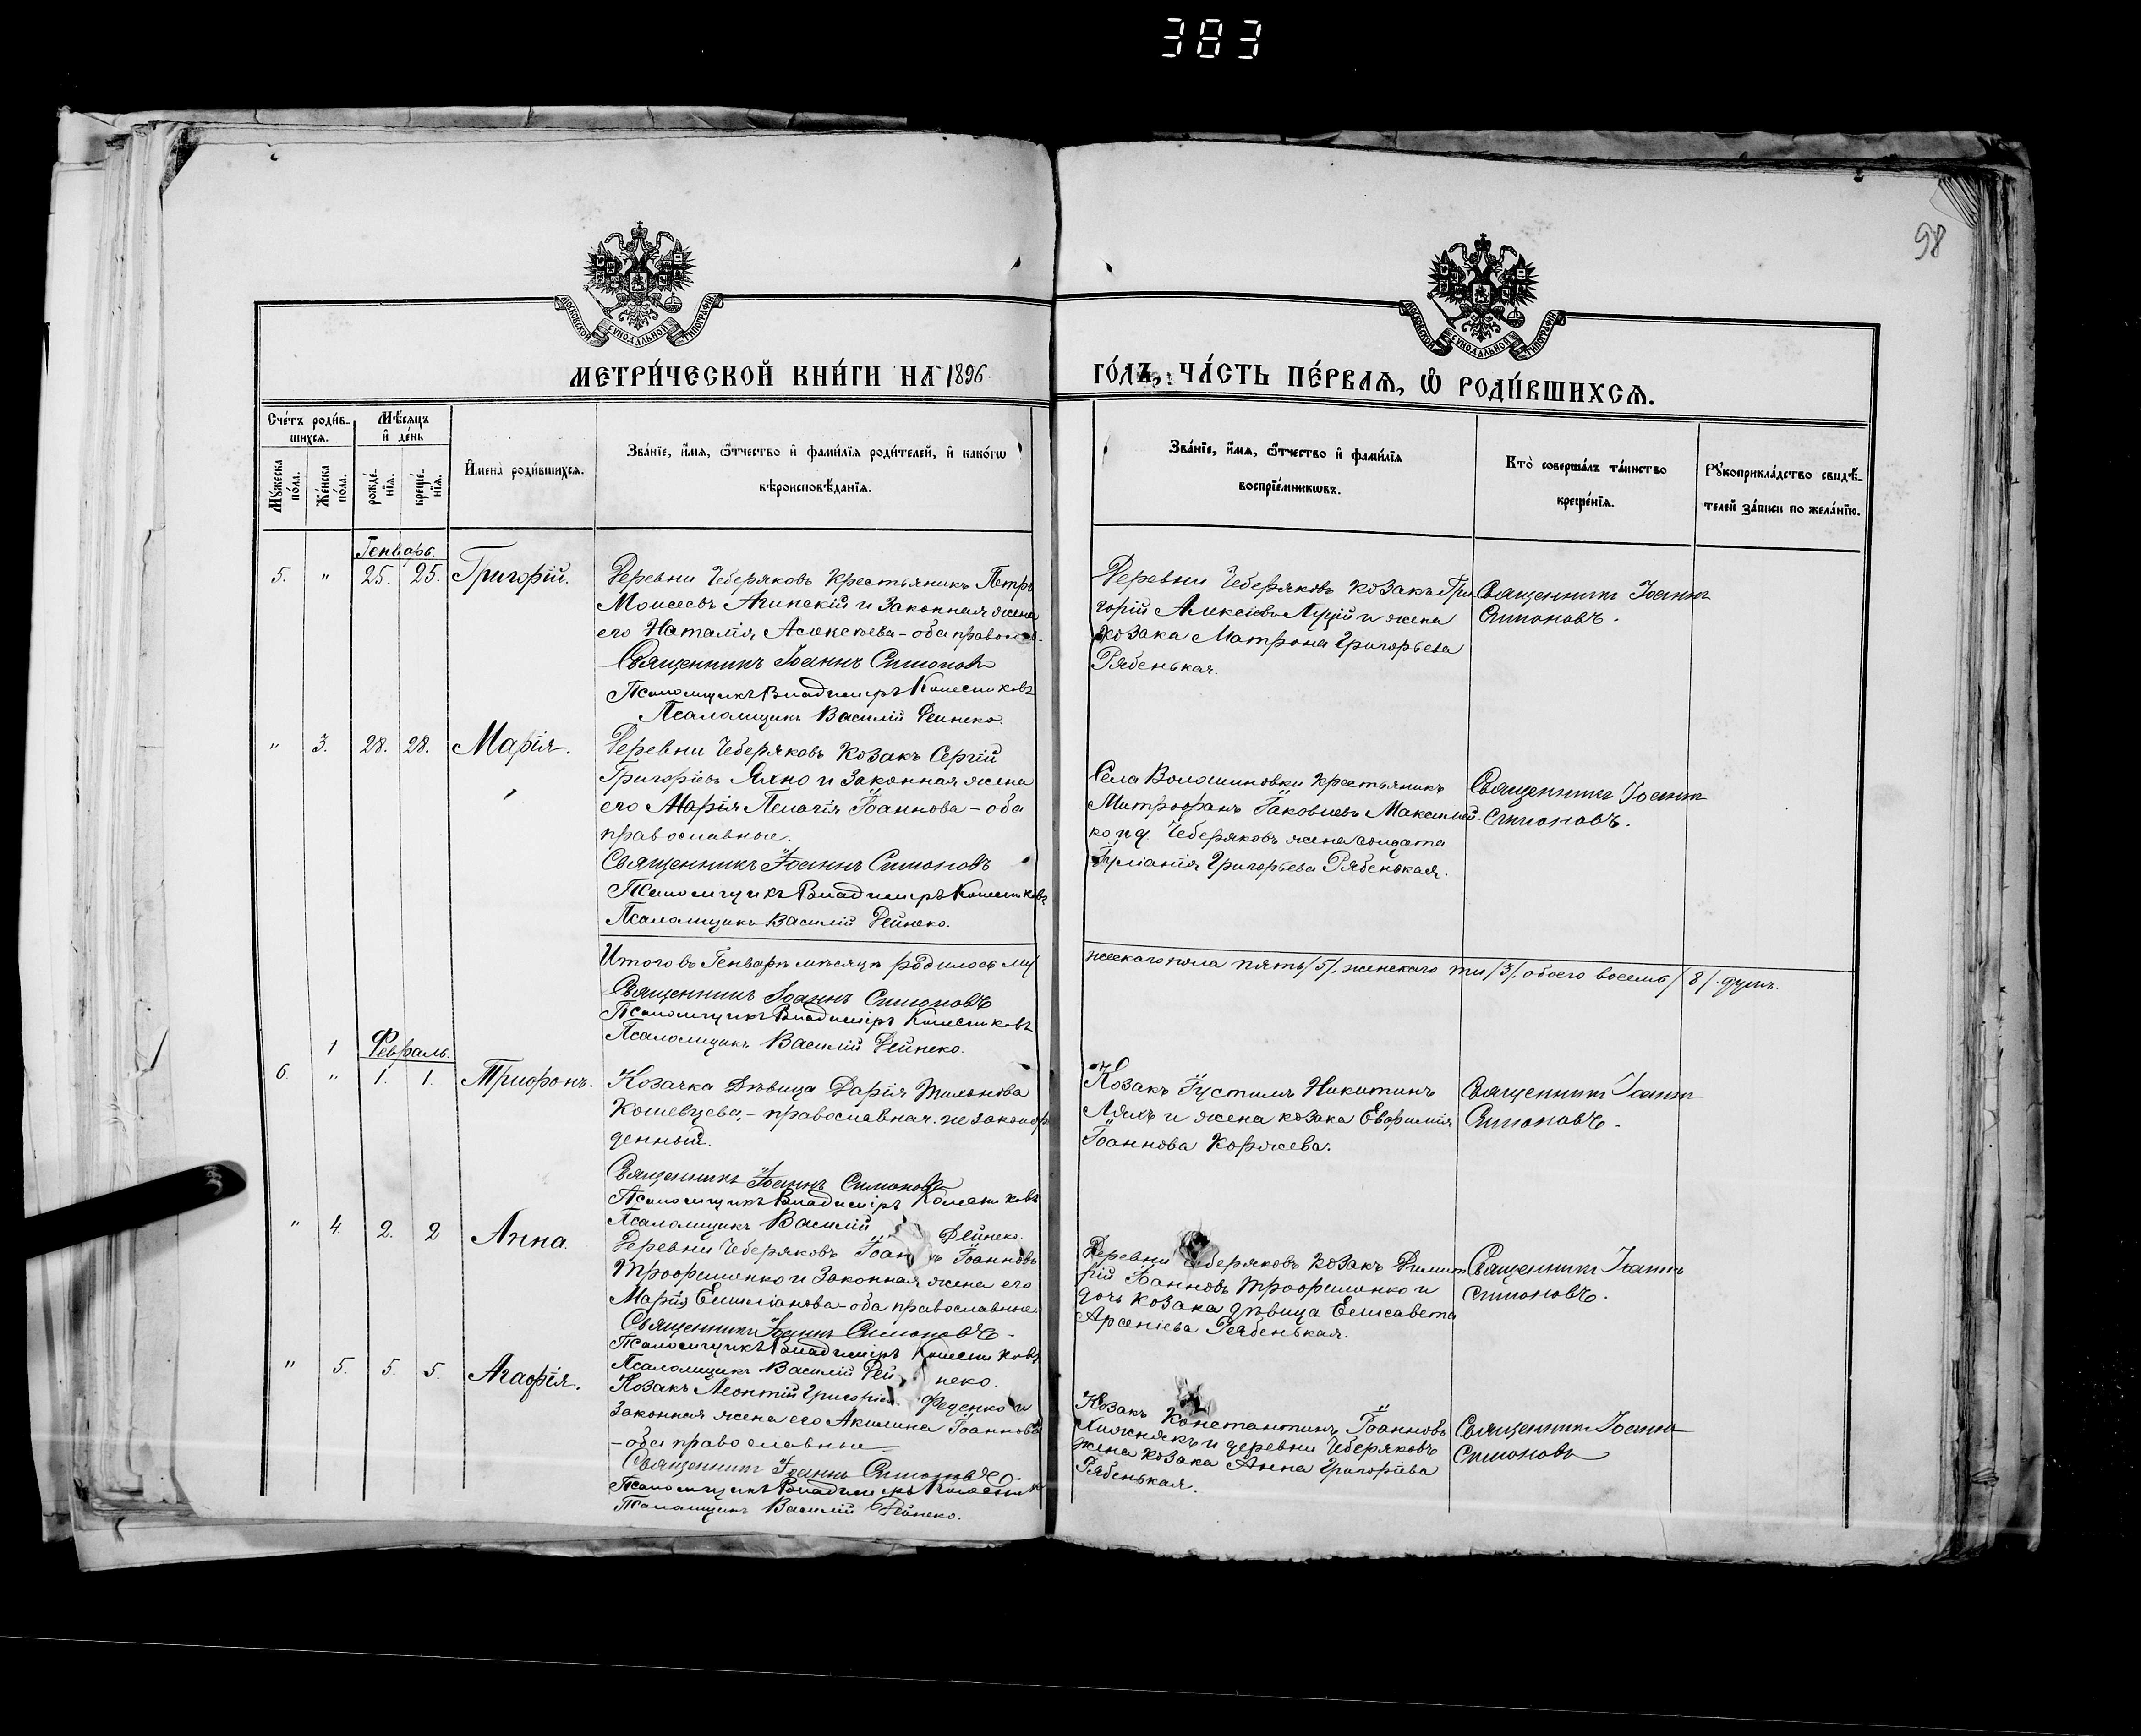 383
98
МОСКОВСКОЙ СУНОДАЛЬНОЙ ТИПОГРАФІИ
МОСКОВСКОЙ СУНОДАЛЬНОЙ ТИПОГРАФІИ
МЕТРИ́ЧЕСКОЙ КНИ́ГИ НА 1896
ГО́ДЪ, ЧА́СТЬ ПЕ́РВАѦ, Ѽ РОДИ́ВШИХСѦ.
Сче́тъ роди́в-
шихсѧ.
Мѣ́сѧцъ
и҆ де́нь
Мꙋ́жеска
по́ла.
Же́нска
по́ла.
рожде́-
нїѧ.
креще́-
нїѧ.
И҆мена̀ роди́вшихсѧ.
Зва́нїе, и҆́мѧ, ѻ҆́тчество и҆ фами́лїѧ роди́телей, и҆ како́гѡ
вѣроисповѣ́данїѧ.
Зва́нїе, и҆́мѧ, ѻ҆́тчество и҆ фами́лїѧ
воспрїе́мникѡвъ.
Кто̀ соверша́лъ та́инство
креще́нїѧ.
Рꙋкоприкла́дство свидѣ́-
телей за́писи по жела́нїю.
Генварь.
5. " 25. 25. Григорій.
Деревни Чеберяковъ Крестьянинъ Петръ
Моисеевъ Агинскій и Законная жена
его Наталія Алексѣева - оба правосл.
Священникъ Іоаннъ Симоновъ
Псаломщикъ Владиміръ Колесниковъ
Псаломщикъ Василій Рейнеко.
Деревни Чеберяковъ козакъ Гри
горій Алексѣевъ и жена
козака Матрона Григорьева
Рябенькая.
Священникъ Іоаннъ
Симоновъ.
" 3. 28. 28. Марія.
Деревни Чеберяковъ Козакъ Сергій
Григоріевъ Яхно и Законная жена
его Марія Пелагія Іоаннова - оба
православные.
Священникъ Іоаннъ Симоновъ
Псаломщикъ Владиміръ Колесниковъ
Псаломщикъ Василій Рейнеко.
Села Волошиновки крестьянинъ
Митрофанъ Іаковлевъ Максимей-
ко и д. Чеберяковъ жена солдата
Іуліанія Григорьева Рябенькая.
Священникъ Іоаннъ
Симоновъ.
Итого въ Генварѣ мѣсяцѣ родилось му
жескаго пола пять /5/, женскаго три /3/, обоего восемь /8/ душъ.
Священникъ Іоаннъ Симоновъ
Псаломщикъ Владиміръ Колесниковъ
Псаломщикъ Василій Рейнеко.
1 Февраль.
6. " 1. 1. Трифонъ.
Козачка дѣвица Дарія
Кошевцева, - православная. незаконор
денный.
Священникъ Іоаннъ Симоновъ
Псаломщикъ Владиміръ Колесниковъ
Псаломщикъ Василій Рейнеко.
Козакъ Іустинъ Никитинъ
Ляхъ и жена козака Евфимія
Іоаннова Коржева.
Священникъ Іоаннъ
Симоновъ.
" 4. 2. 2 Анна.
Деревни Чеберяковъ Іоаннъ Іоанновъ
Трофименко и Законная жена его
Марія Емиліанова - оба православные
Священникъ Іоаннъ Симоновъ.
Псаломщикъ Владиміръ Колесниковъ
Псаломщикъ Василій Рейнеко.
Деревни Чеберяковъ козакъ Димит
рій Іоанновъ Трофименко и
дочь козака дѣвица Елисавета
Арсеніева Рябенькая.
Священникъ Іоаннъ
Симоновъ.
" 5. 5. 5. Агафія.
Козакъ Леонтій Григоріев Феденко и
Законная жена его Акилина Іоаннова
- оба православные
Священникъ Іоаннъ Симоновъ.
Псаломщикъ Владиміръ Колесников
Псаломщикъ Василій Рейнеко.
Козакъ Константинъ Іоанновъ
Хижнякъ и деревни Чеберяковъ
жена козака Анна Григоріева
Рябенькая.
Священникъ Іоаннъ
Симоновъ